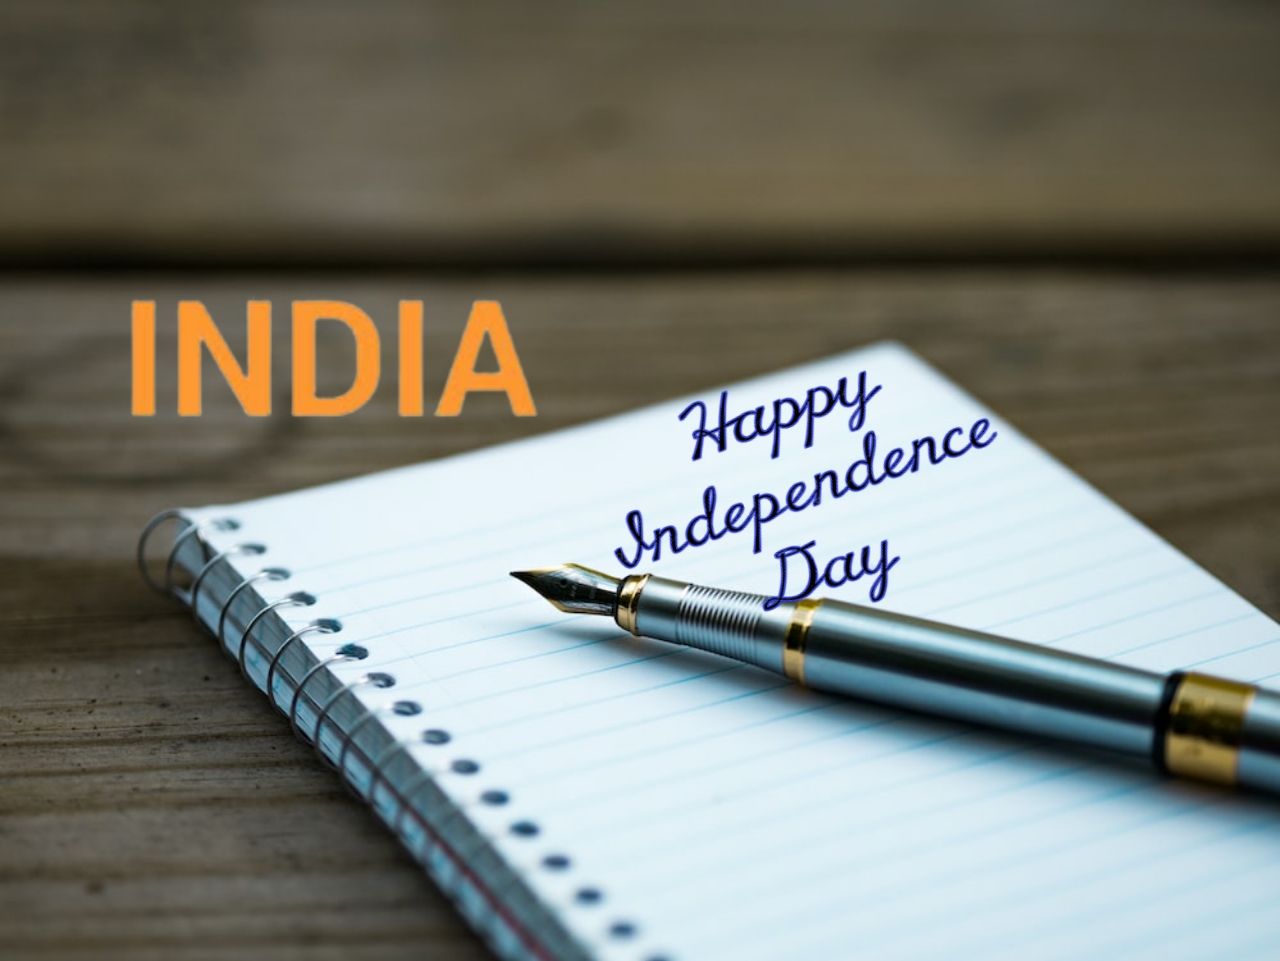 INDIA
Happy
Independence
Day